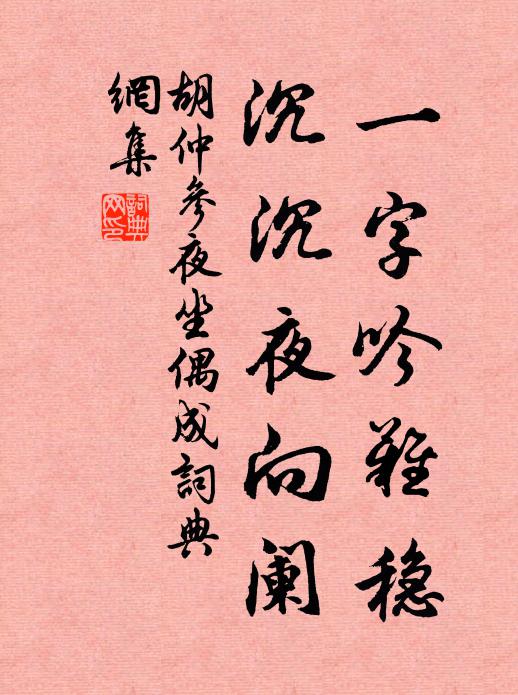 一字吟难稳
沉沉夜向阑
胡仲參夜坐偶成詞典
網集
詞典网印